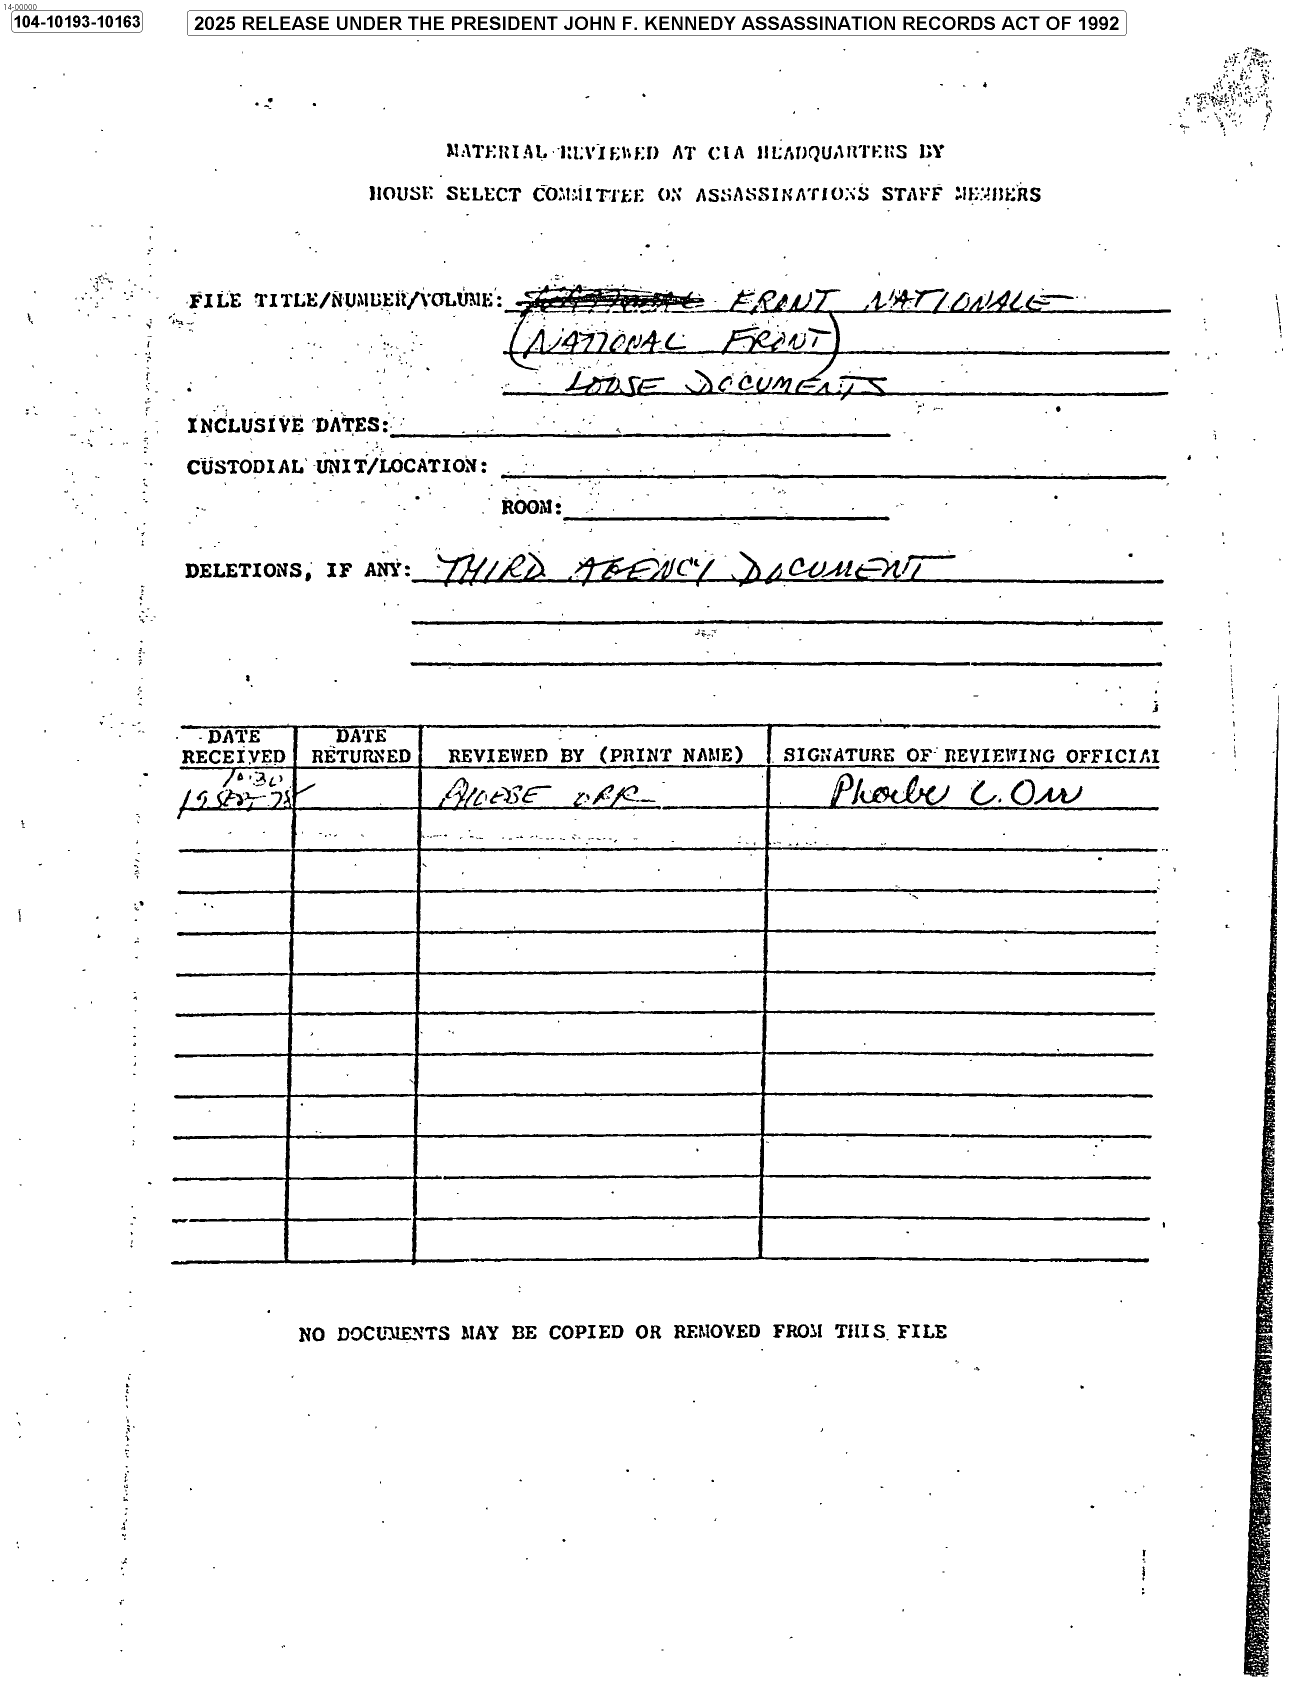 14-00000
104-10193-10163
2025 RELEASE UNDER THE PRESIDENT JOHN F. KENNEDY ASSASSINATION RECORDS ACT OF 1992
MATERIAL REVIEWED AT CIA HEADQUARTERS BY
HOUSE SELECT COMMITTEE ON ASSASSINATIONS STAFF MEMBERS
FILE TITLE/NUMBER/VOLUME: FRONT NATIONALE
(NATIONAL FRONT)
LOOSE DOCUMENTS
INCLUSIVE DATES:
CUSTODIAL UNIT/LOCATION:
ROOM:
DELETIONS, IF ANY: THIRD AGENCY DOCUMENT
DATE RECEIVED DATE RETURNED REVIEWED BY (PRINT NAME) SIGNATURE OF REVIEWING OFFICIAL
10:30
SEPT 78 PHOEBE ORR Phoebe C. Orr
NO DOCUMENTS MAY BE COPIED OR REMOVED FROM THIS FILE